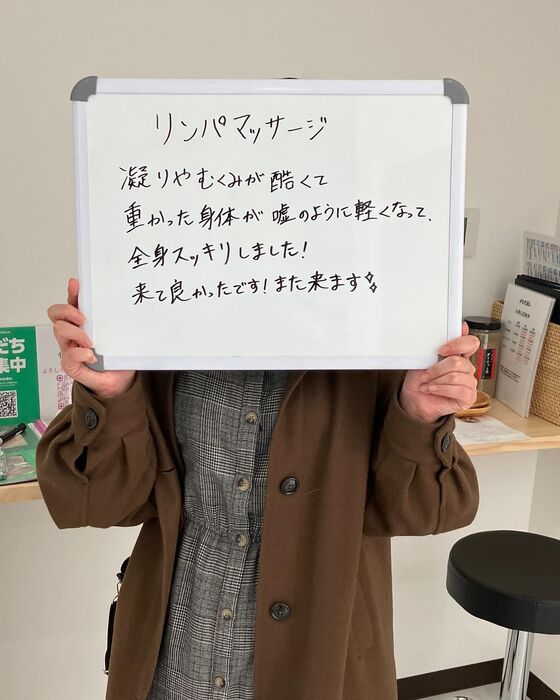 リンパマッサージ
凝りやむくみが酷くて
重かった身体が嘘のように軽くなって、
全身スッキリしました!
来て良かったです!また来ます
だち
集中
よろし